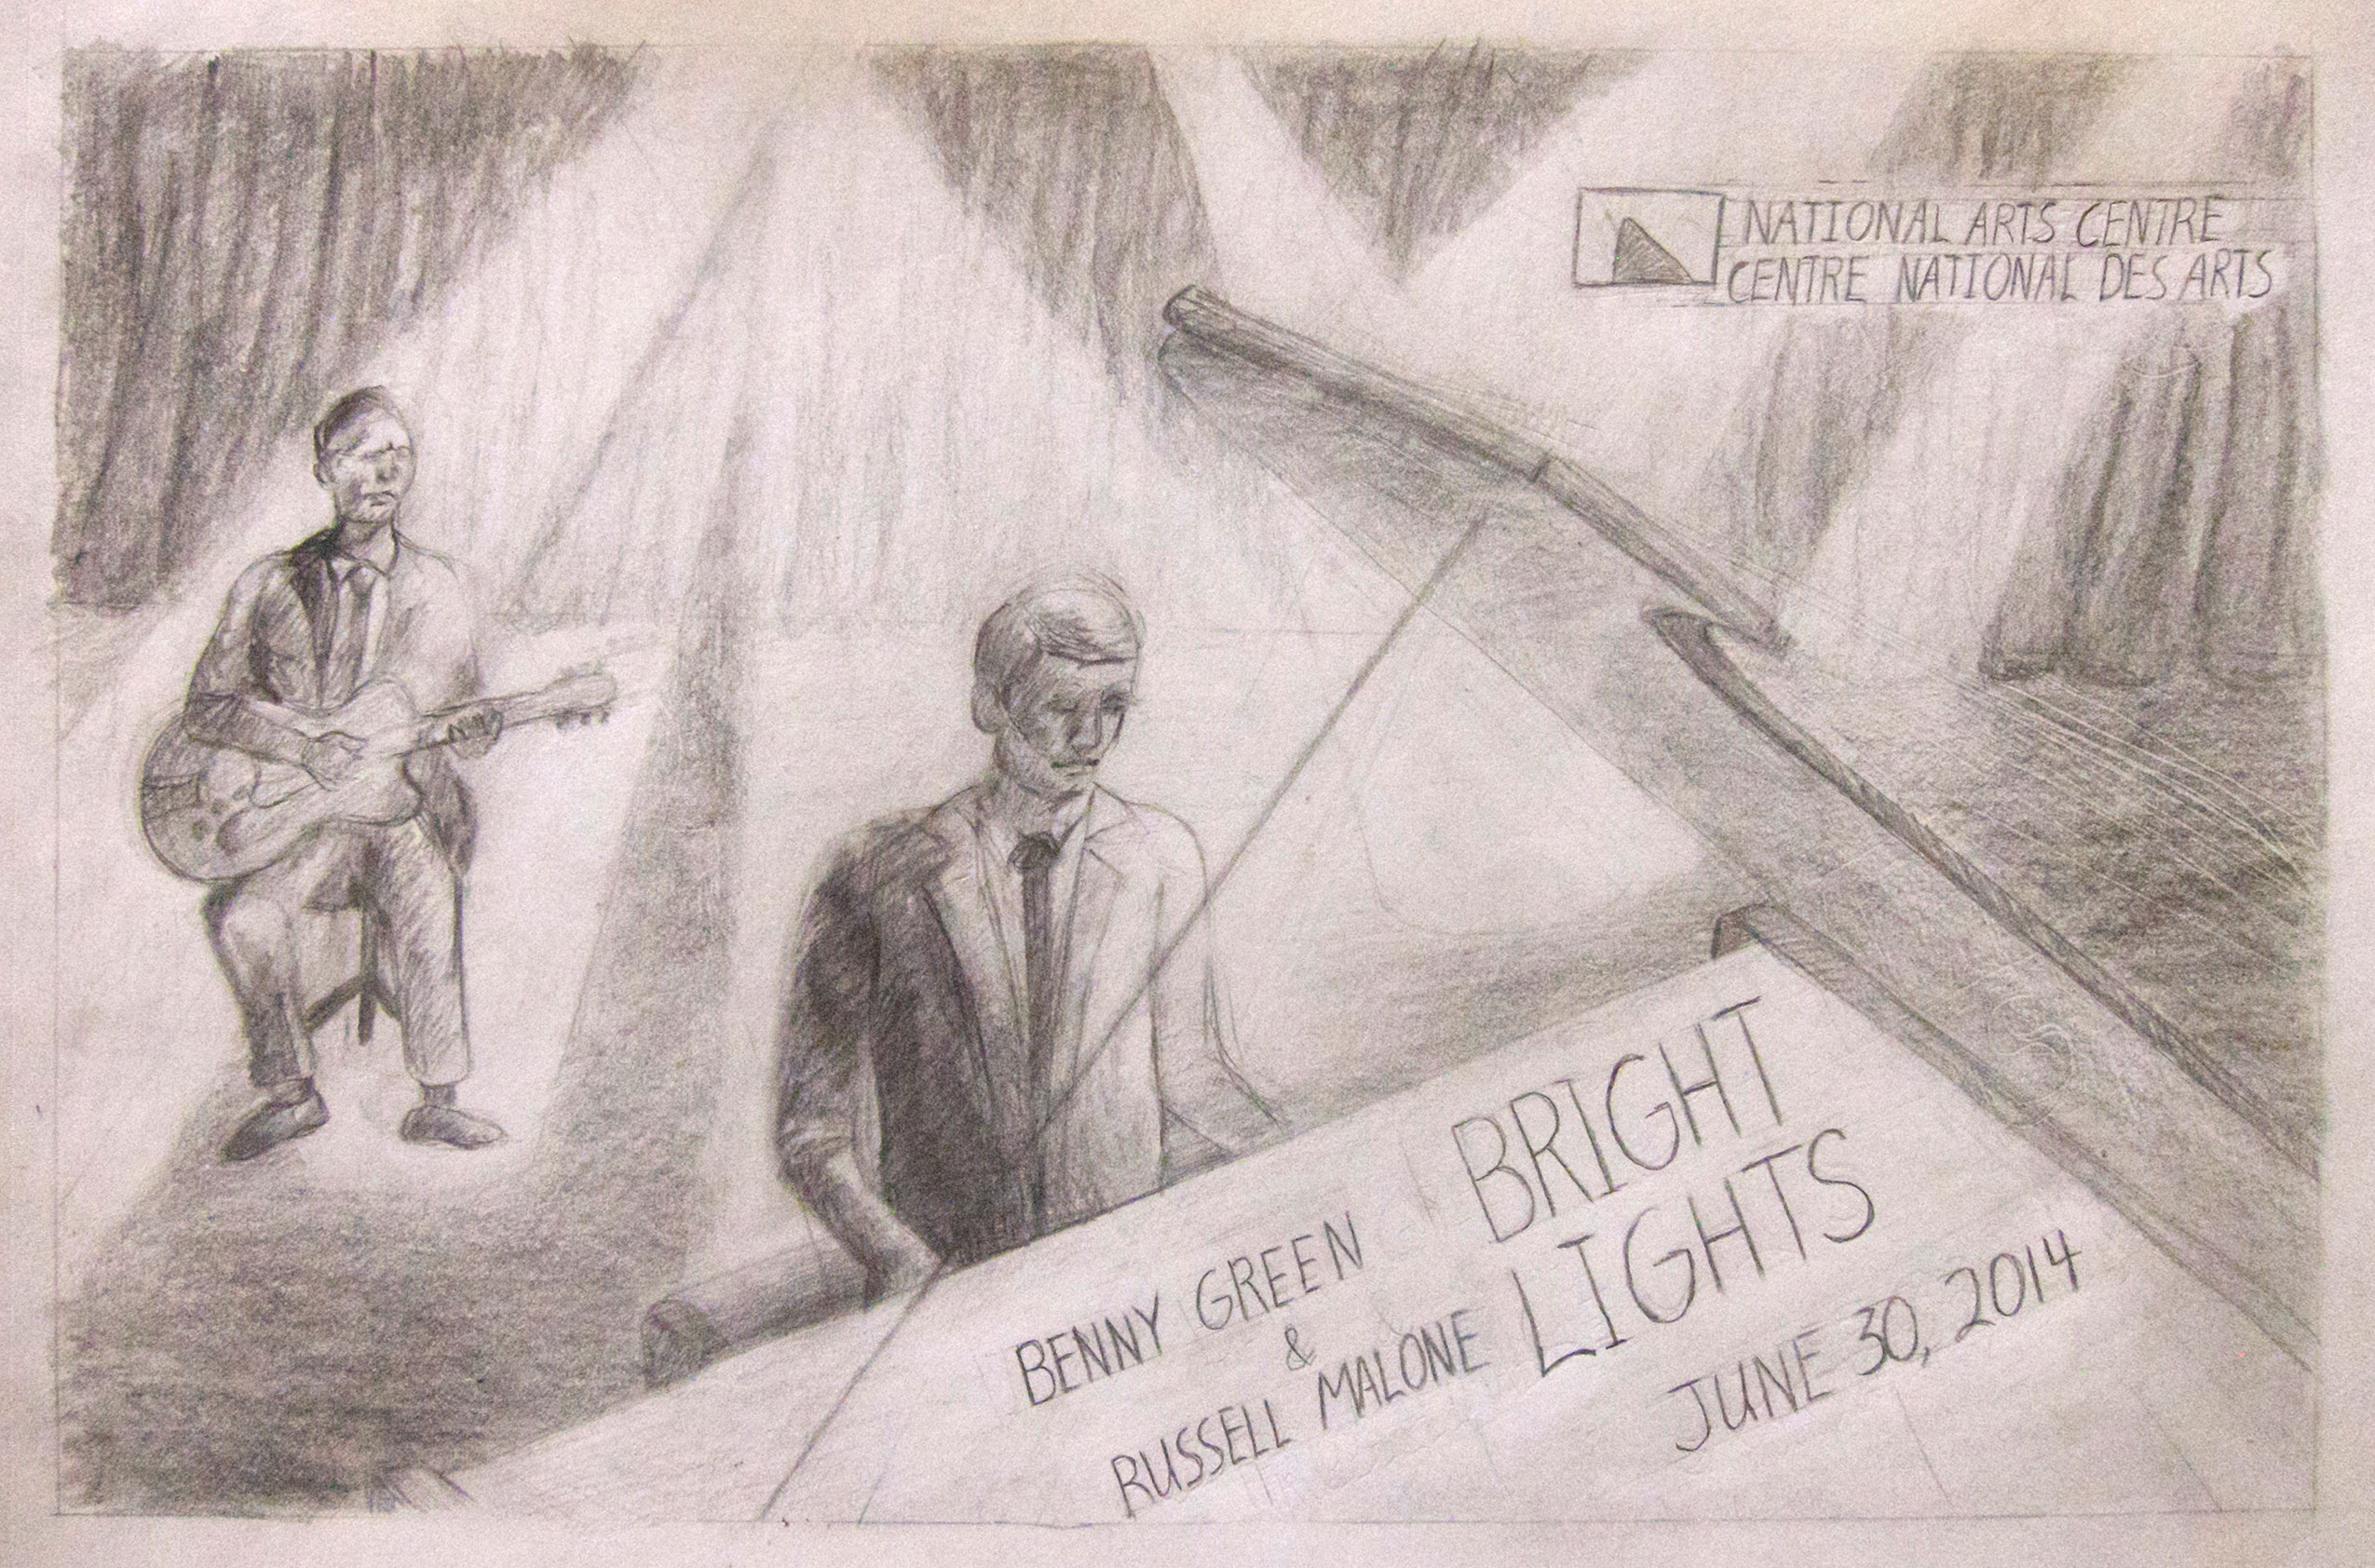 NATIONAL ARTS CENTRE
CENTRE NATIONAL DES ARTS
BENNY GREEN
&
RUSSELL MALONE
BRIGHT
LIGHTS
JUNE 30, 2014